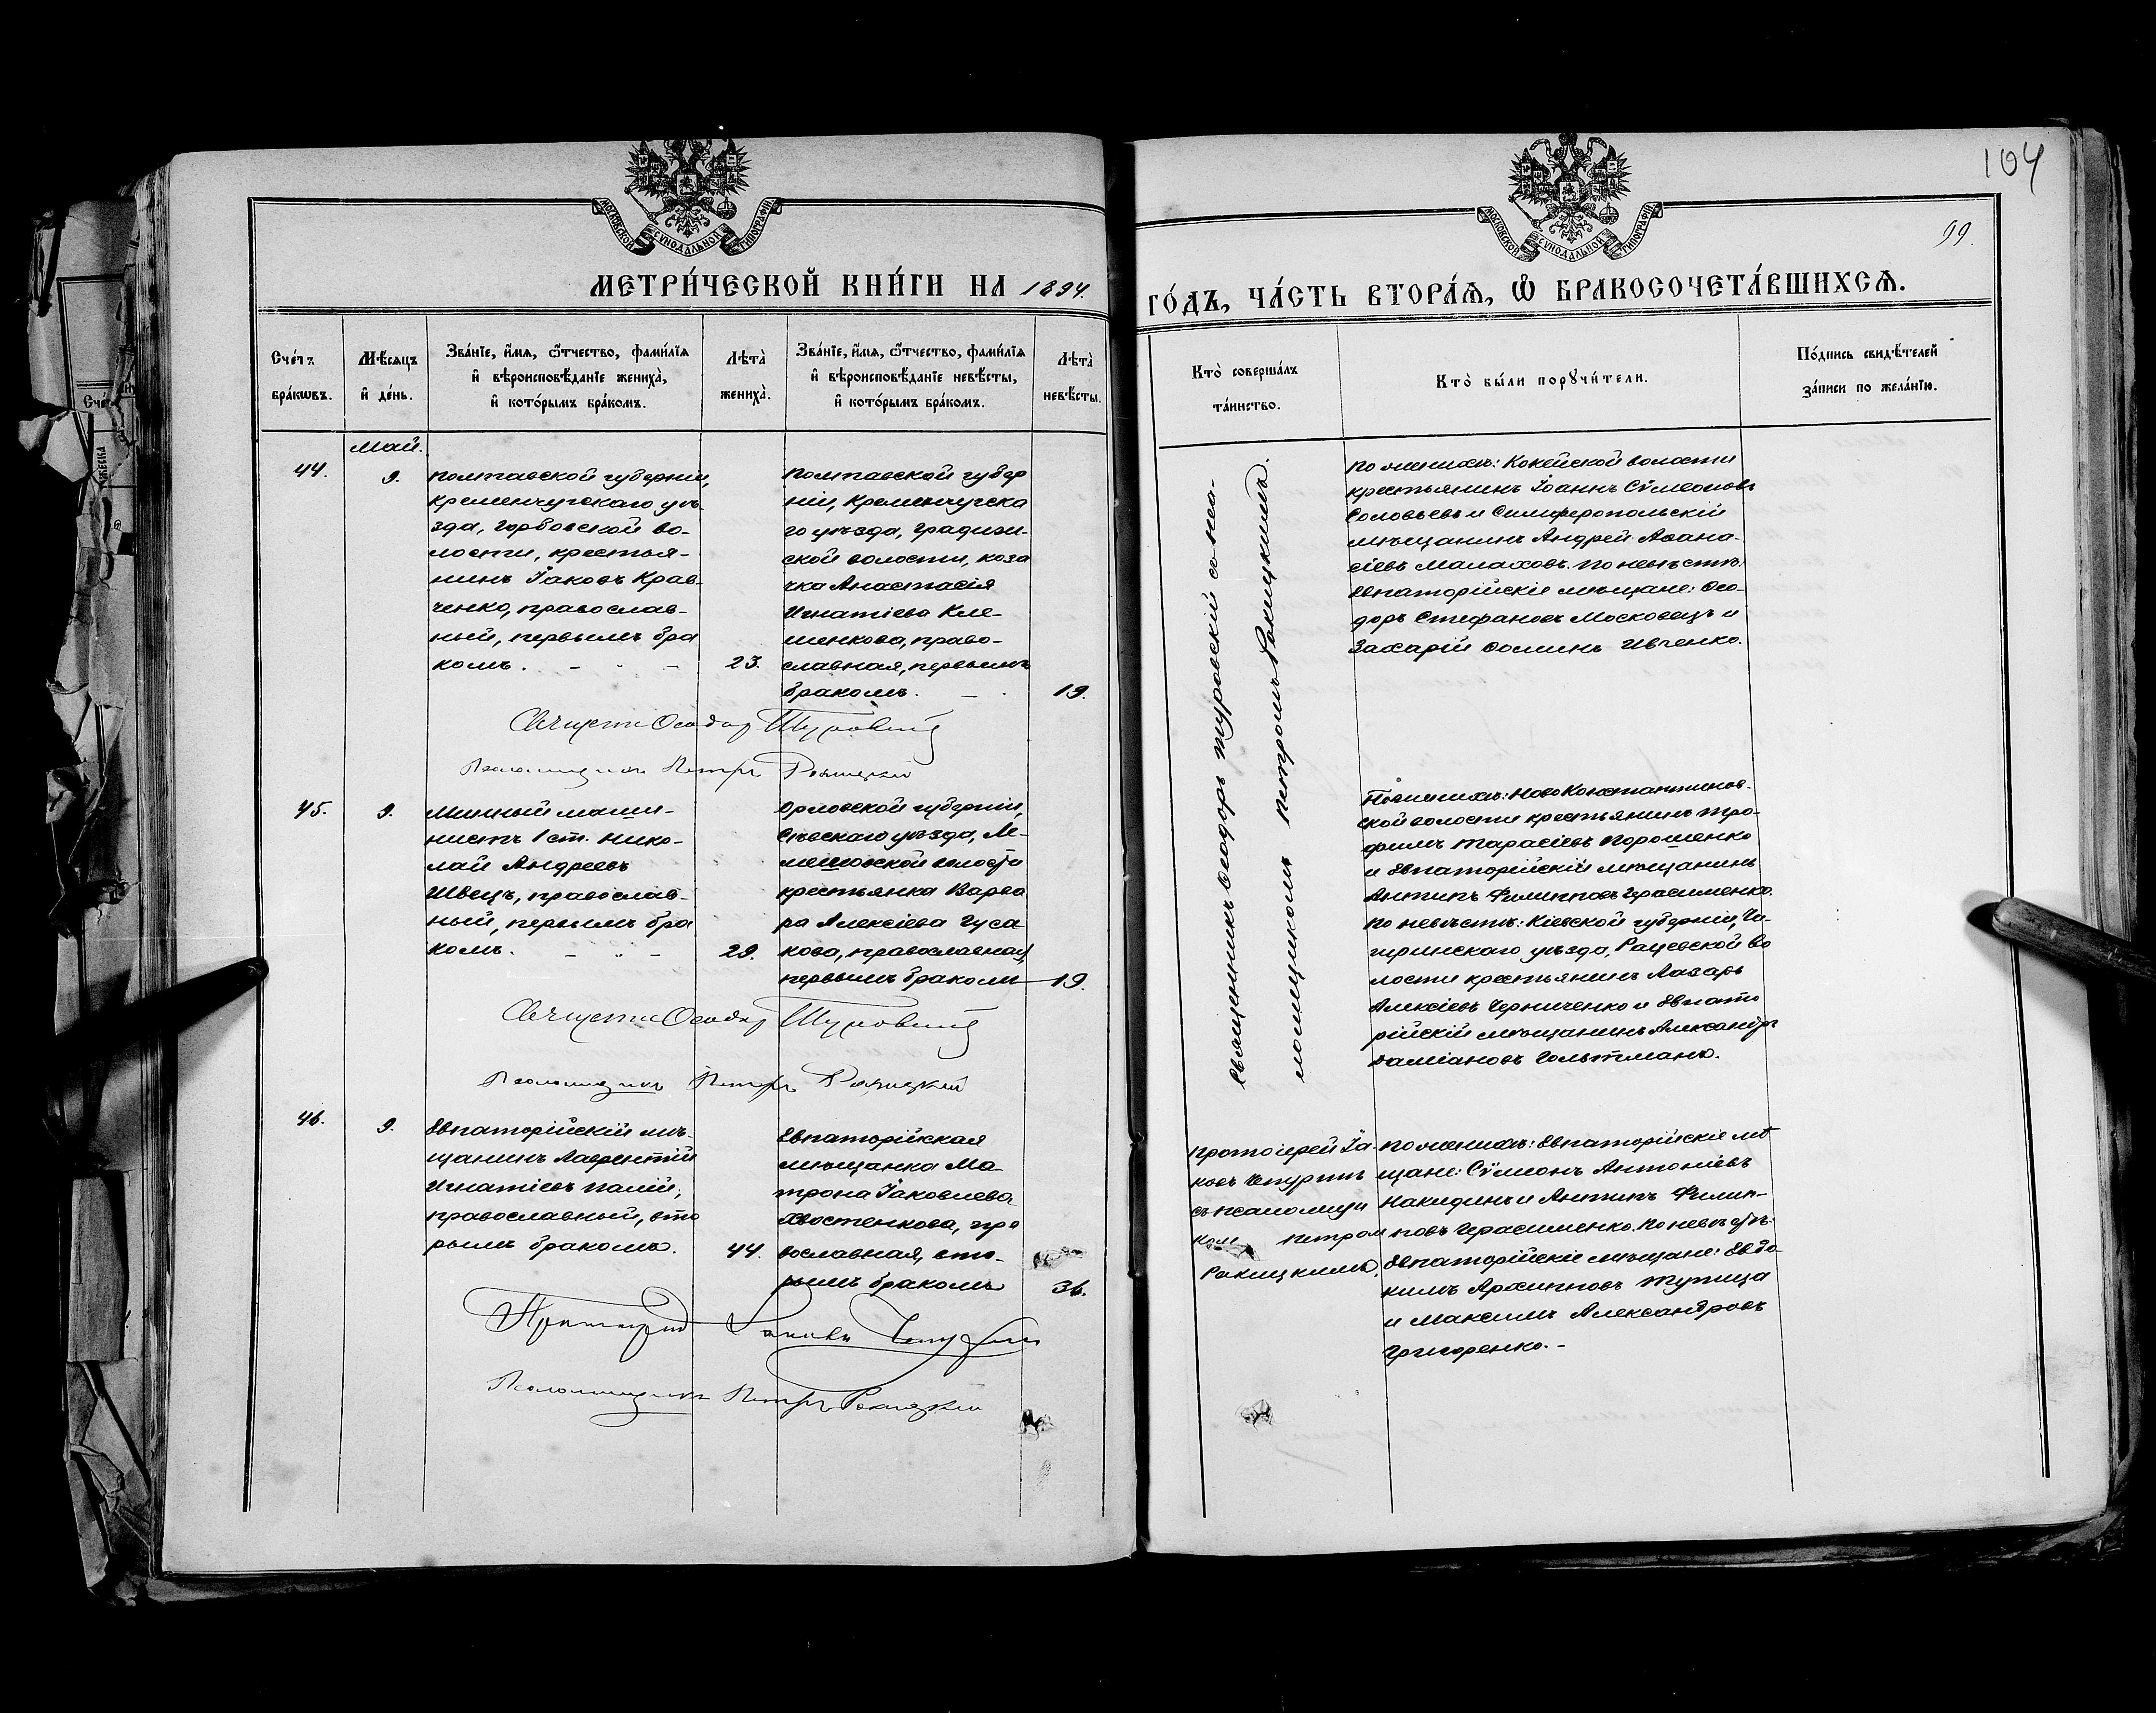 104
99.
МОСКОВСКОЙ СУНОДАЛЬНОЙ ТИПОГРАФІИ
МОСКОВСКОЙ СУНОДАЛЬНОЙ ТИПОГРАФІИ
МЕТРИ́ЧЕСКОЙ КНИ́ГИ НА 1894.
ГО́ДЪ, ЧА́СТЬ ВТОРА́Ѧ, Ѡ҆ БРАКОСОЧЕТА́ВШИХСѦ.
Сче́тъ
бра́кѡвъ.
Мѣ́сѧцъ
и҆ де́нь.
Зва́нїе, и҆́мѧ, ѻ҆́тчество, фами́лїѧ
и҆ вѣроисповѣ́данїе жениха̀,
и҆ кото́рымъ бра́комъ.
Лѣта̀
жениха̀.
Зва́нїе, и҆́мѧ, ѻ҆́тчество, фами́лїѧ
и҆ вѣроисповѣ́данїе невѣ́сты,
и҆ кото́рымъ бра́комъ.
Лѣта̀
невѣ́сты.
Кто̀ соверша́лъ
та́инство.
Кто̀ бы́ли порꙋчи́тели.
По́дпись свидѣ́телей
за́писи по жела́нїю.
Май.
44.
9.
Полтавской губерніи,
Кременчугскаго уѣ-
зда, Горбовской во-
лости, крестья-
нинъ Іаковъ Крав-
ченко, православ-
ный, первымъ бра
комъ.
23.
Полтавской губер
ніи, Кременчугска
го уѣзда, Градизи-
ской волости, коза
чка Анастасія
Игнатіева Кле-
менкова, право-
славная, первымъ
бракомъ.
19.
Священникъ Ѳеодоръ Туровскій съ пса-
ломщикомъ Петромъ Ракицкимъ.
По женихѣ: Кокейской волости
крестьянинъ Іоаннъ Сѵмеоновъ
Соловьевъ и Симферопольскій
мѣщанинъ Андрей Аѳана-
сіевъ Малаховъ. По невѣстѣ:
Евпаторійскіе мѣщане: Ѳео-
доръ Стефановъ Московецъ и
Захарій Ѳоминъ Ивченко.
Священ Ѳеодор Туровский
Псаломщикъ Петръ Ракицкій
45.
9.
Минный маши-
нистъ 1 ст. Нико-
лай Андреевъ
Швецъ, православ-
ный, первымъ бра
комъ.
29.
Орловской губерніи,
Сѣвскаго уѣзда, Ле-
мешовской волости
крестьянка Варва
ра Алексіева Гуса-
кова, православная,
первымъ бракомъ
19.
По женихѣ: Ново Константинов-
ской волости крестьянинъ Тро-
фимъ Тарасіевъ Порошенко
и Евпаторійскій мѣщанинъ
Антипъ Филипповъ Герасименко.
По невѣстѣ: Кіевской губерніи, Чи-
гиринскаго уѣзда, Рацевской во
лости крестьянинъ Лазарь
Алексіевъ Черниченко и Евпато
рійскій мѣщанинъ Александръ
Даміановъ Гольтманъ.
Священ Ѳеодор Туровский
Псаломщикъ Петръ Ракицкій
46.
9.
Евпаторійскій мѣ-
щанинъ Лаврентій
Игнатіевъ Палій,
православный, вто
рымъ бракомъ.
44.
Евпаторійская
мѣщанка Ма-
трона Іаковлева
Хвостенкова, пра
вославная, вто-
рымъ бракомъ
36.
Протоіерей Іа-
ковъ Чепуринъ
съ псаломщи
ком Петром
Ракицкимъ.
По женихѣ: Евпаторійскіе мѣ
щане: Сѵмеонъ Антоніевъ
Накидинъ и Антипъ Филип-
повъ Герасименко. По невѣстѣ:
Евпаторійскіе мѣщане: Евдо-
кимъ Архиповъ Тупица
и Максимъ Александровъ
Григоренко.-
Протоіерей Іаковъ Чепурин
Псаломщикъ Петръ Ракицкій